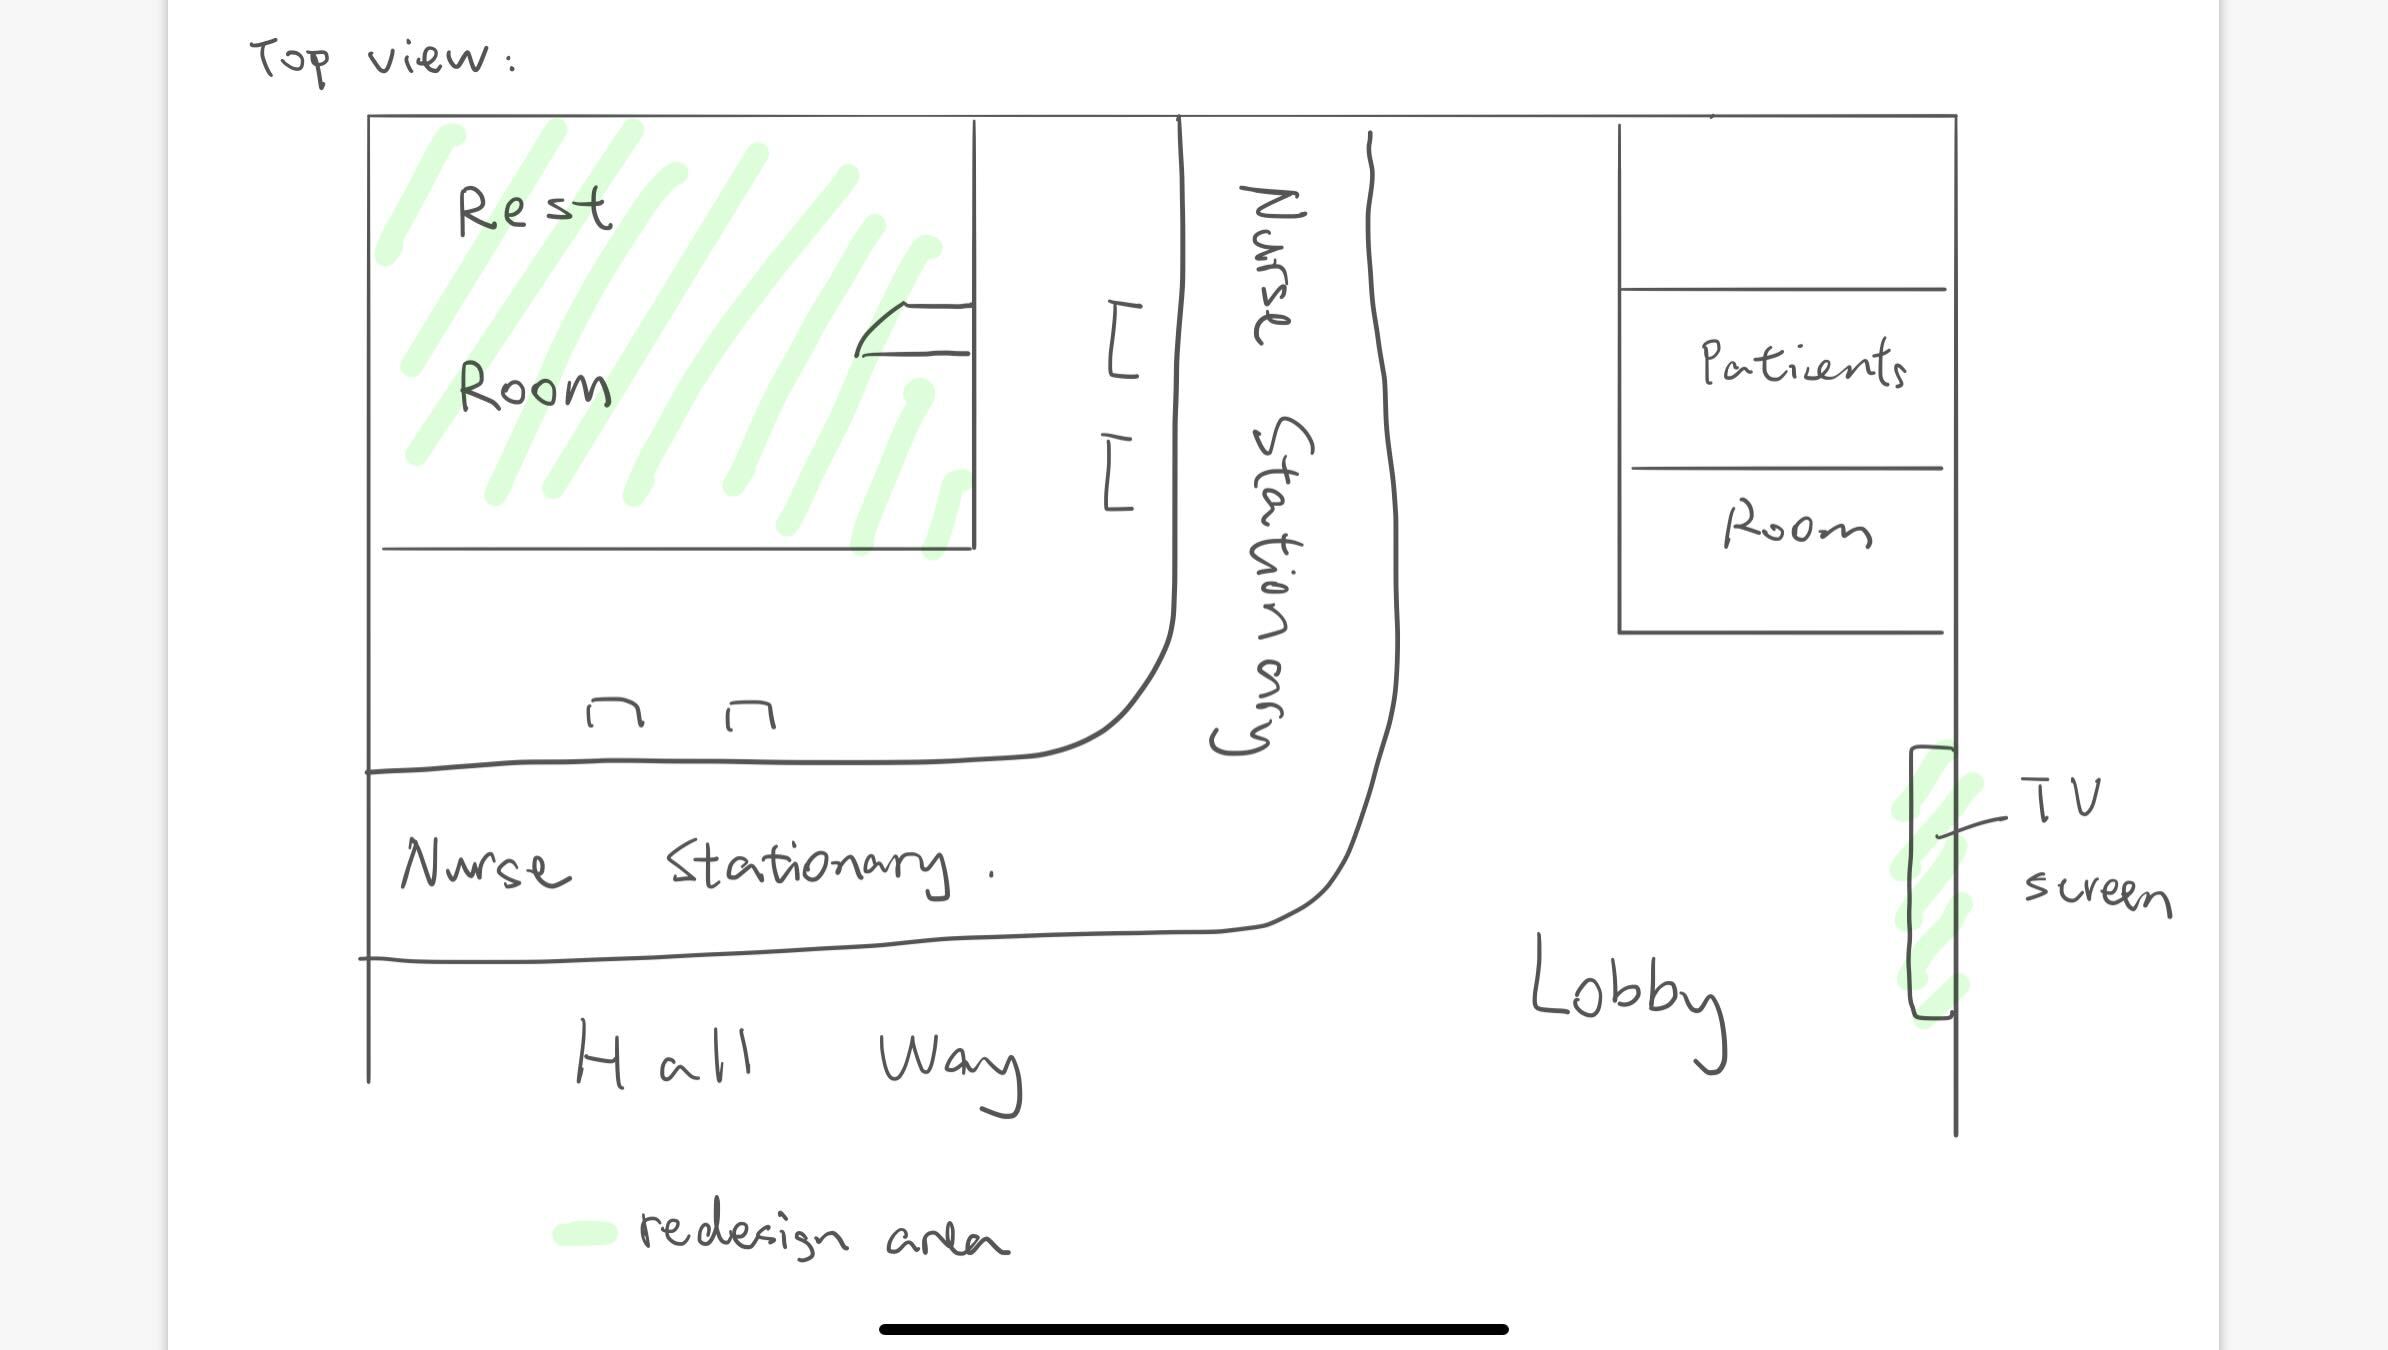 Top view:
Rest
Room
Nurse Stationary
Patients
Room
Nurse Stationary.
TV
screen
Lobby
Hall Way
redesign area